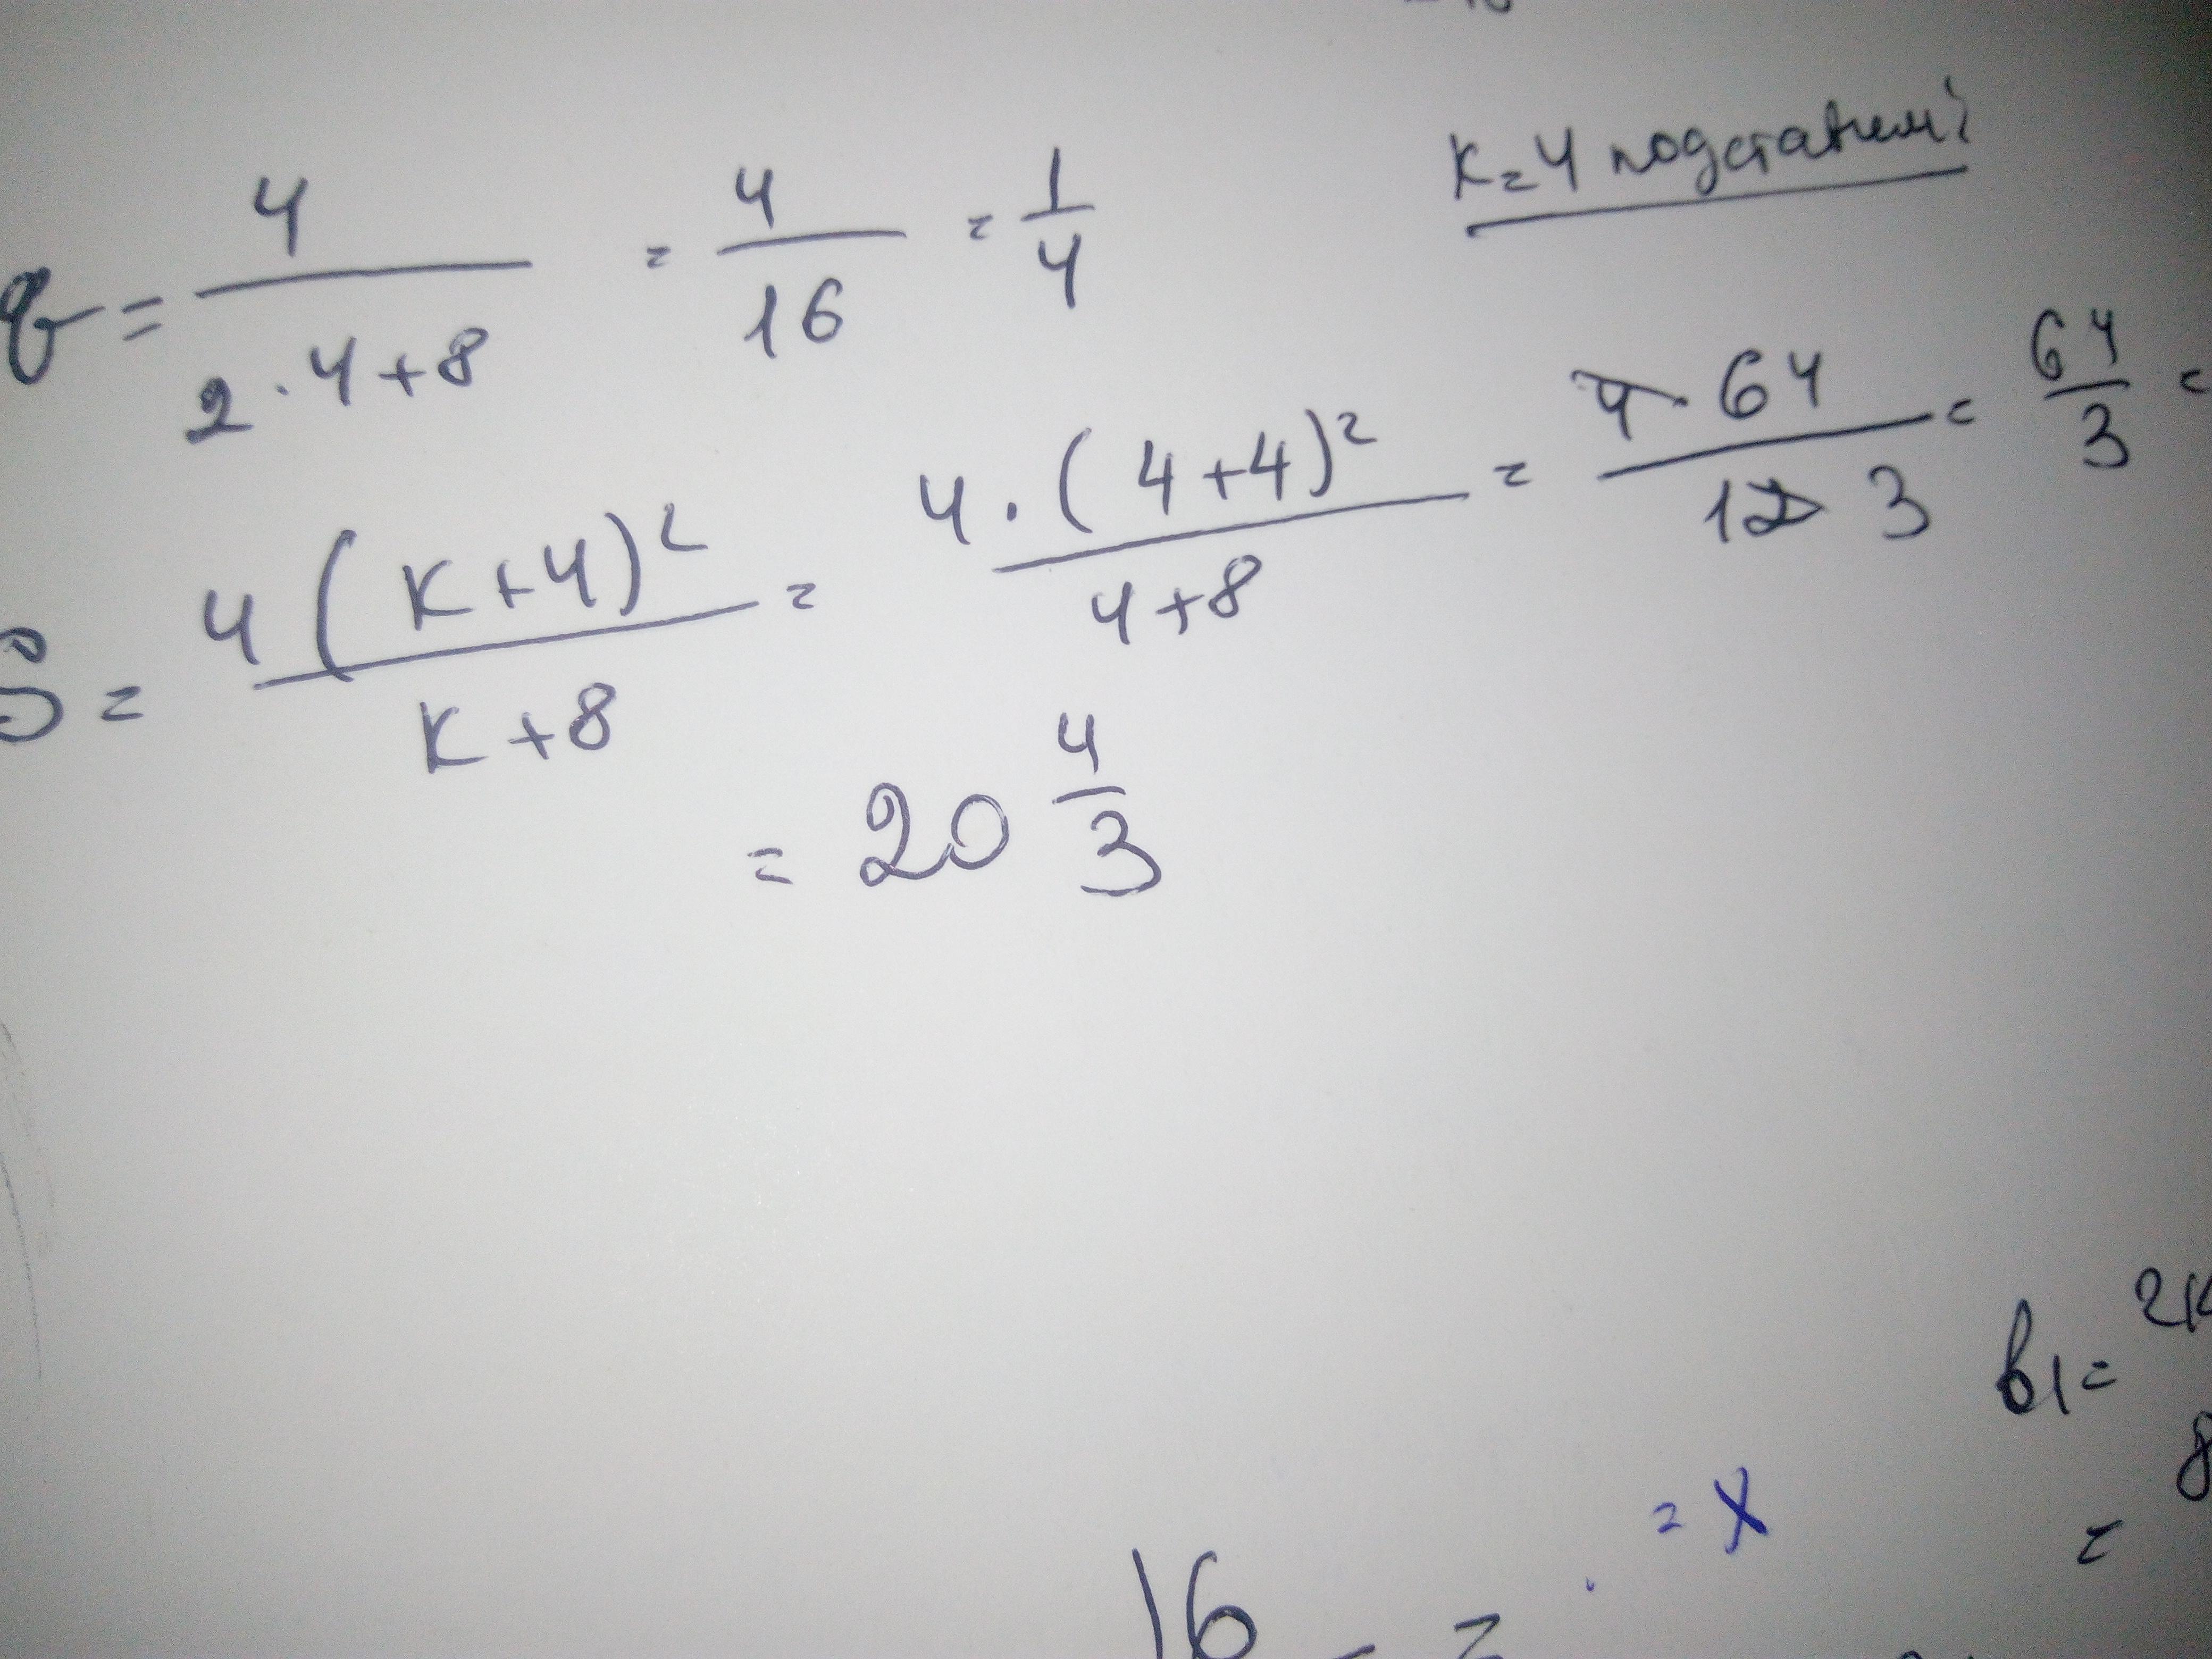 k=4 подставим
q = 4/(2·4+8) = 4/16 = 1/4
S = 4(k+4)²/(k+8) = 4·(4+4)²/(4+8) = 4·64/12 3 = 64/3 =
= 20 4/3
b1= 2k
8
= x
=
16